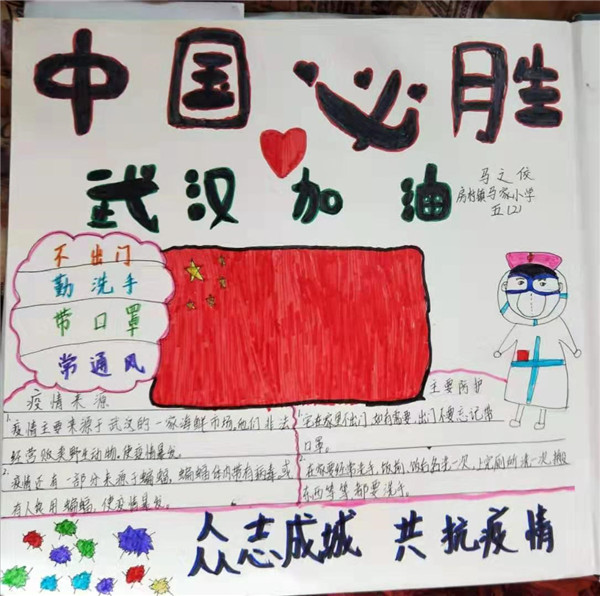 中国必胜
武汉加油
马之佼
房村镇马家小学
五(2)
不出门
勤洗手
带口罩
常通风
疫情来源
1. 疫情主要来源于武汉的一家海鲜市场,他们非法
经营贩卖野生动物,使疫情暴发。
2. 疫情还有一部分来源于蝙蝠,蝙蝠体内带有病毒,或
有人食用蝙蝠,使疫情暴发。
主要防护
1. 宅在家里不出门,如有需要,出门不要忘记带
口罩。
2. 在家要经常洗手,饭前、饭后各洗一次,上完厕所洗一次,搬
东西等等都要洗手。
众志成城 共抗疫情